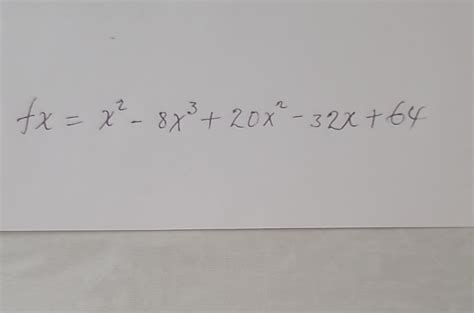 fx = x² - 8x³ + 20x² - 32x + 64